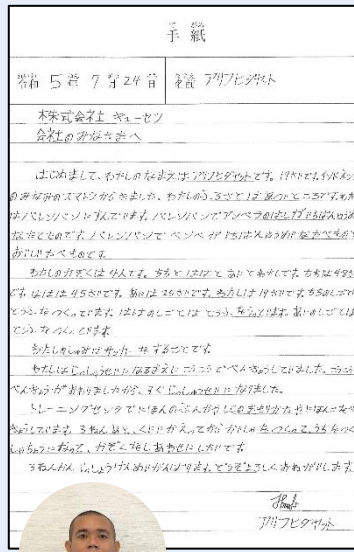 手紙
令和 5年 7月24日 名前 アリフヒダヤット
株式会社 キューセツ
会社のみなさまへ
はじめまして、わたしのなまえはアリフヒダヤットです。19さいです。インドネシア
のみなみのスマトラからきました。わたしのふるさとはあついところです。わたし
はパレンバンにすんでいます。パレンバンでアンペラのはしがいちばんゆうめい
なたてものです。パレンバンで ペンペがいちばんゆうめいなたべもので
おいしいたべものです。
わたしのかぞくは4人です。ちちと ははと あにと わたしです。ちちは48さい
です。ははは 45さいです。あには 25さいです。わたしは 19さいです。ちちのしごとは
とうふをつくっています。ははのしごとは とうふを うっています。あにのしごとは
とうふをつくっています。
わたしのしゅみはサッカーをすることです。
わたしはじっしゅうせいになるまえに こうこうでべんきょうしていました。こうこう
べんきょうがおわりましたから、すぐじっしゅうせいになりました。
トレーニングセンタでにほんのぶんかや
3ねんあと、くににかえってから
かぞくをしあわせにしたいです。
3ねんかん じっしゅうけんめいがんばります。どうぞよろしくおねがいします。
アリフヒダヤット